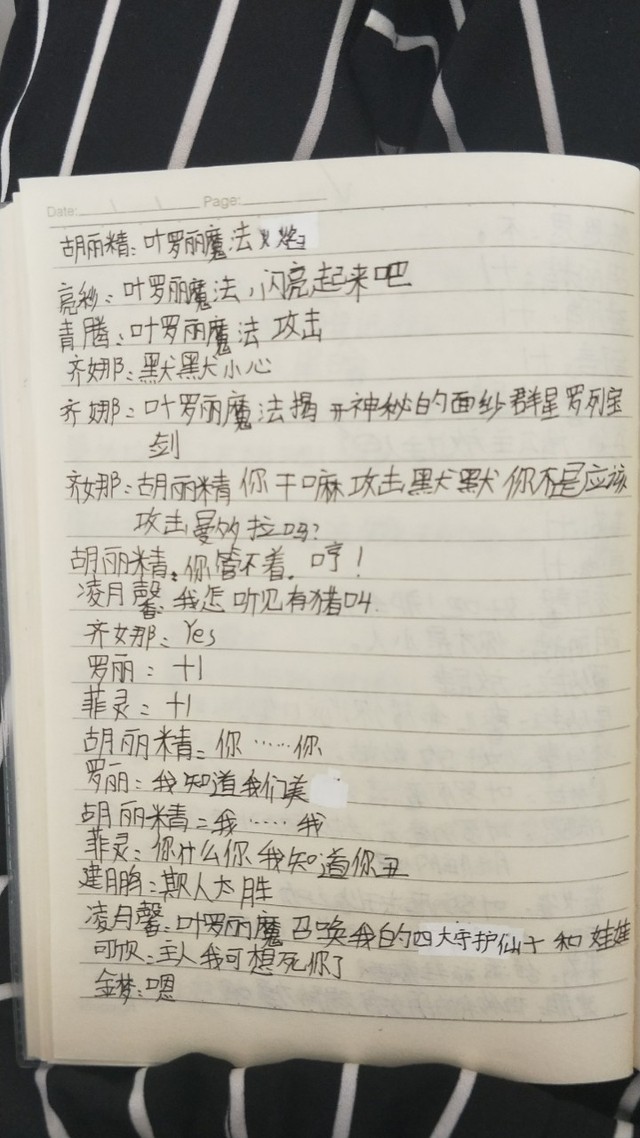 Date: Page:
胡丽精：叶罗丽魔法火焰
亮彩：叶罗丽魔法，闪亮起来吧
青腾：叶罗丽魔法 攻击
齐娜：默默小心
齐娜：叶罗丽魔法揭开神秘的面纱群星罗列宝
剑
齐娜：胡丽精你干嘛攻击默默你不是应该
攻击曼多拉吗？
胡丽精：你管不着．哼！
凌月馨：我怎听见有猪叫
齐娜：Yes
罗丽：+1
菲灵：+1
胡丽精：你……你
罗丽：我知道我们美
胡丽精：我……我
菲灵：你什么你我知道你丑
建鹏：欺人太胜
凌月馨：叶罗丽魔召唤我的四大守护仙子和娃娃
可欣：主人我可想死你了
金梦：嗯